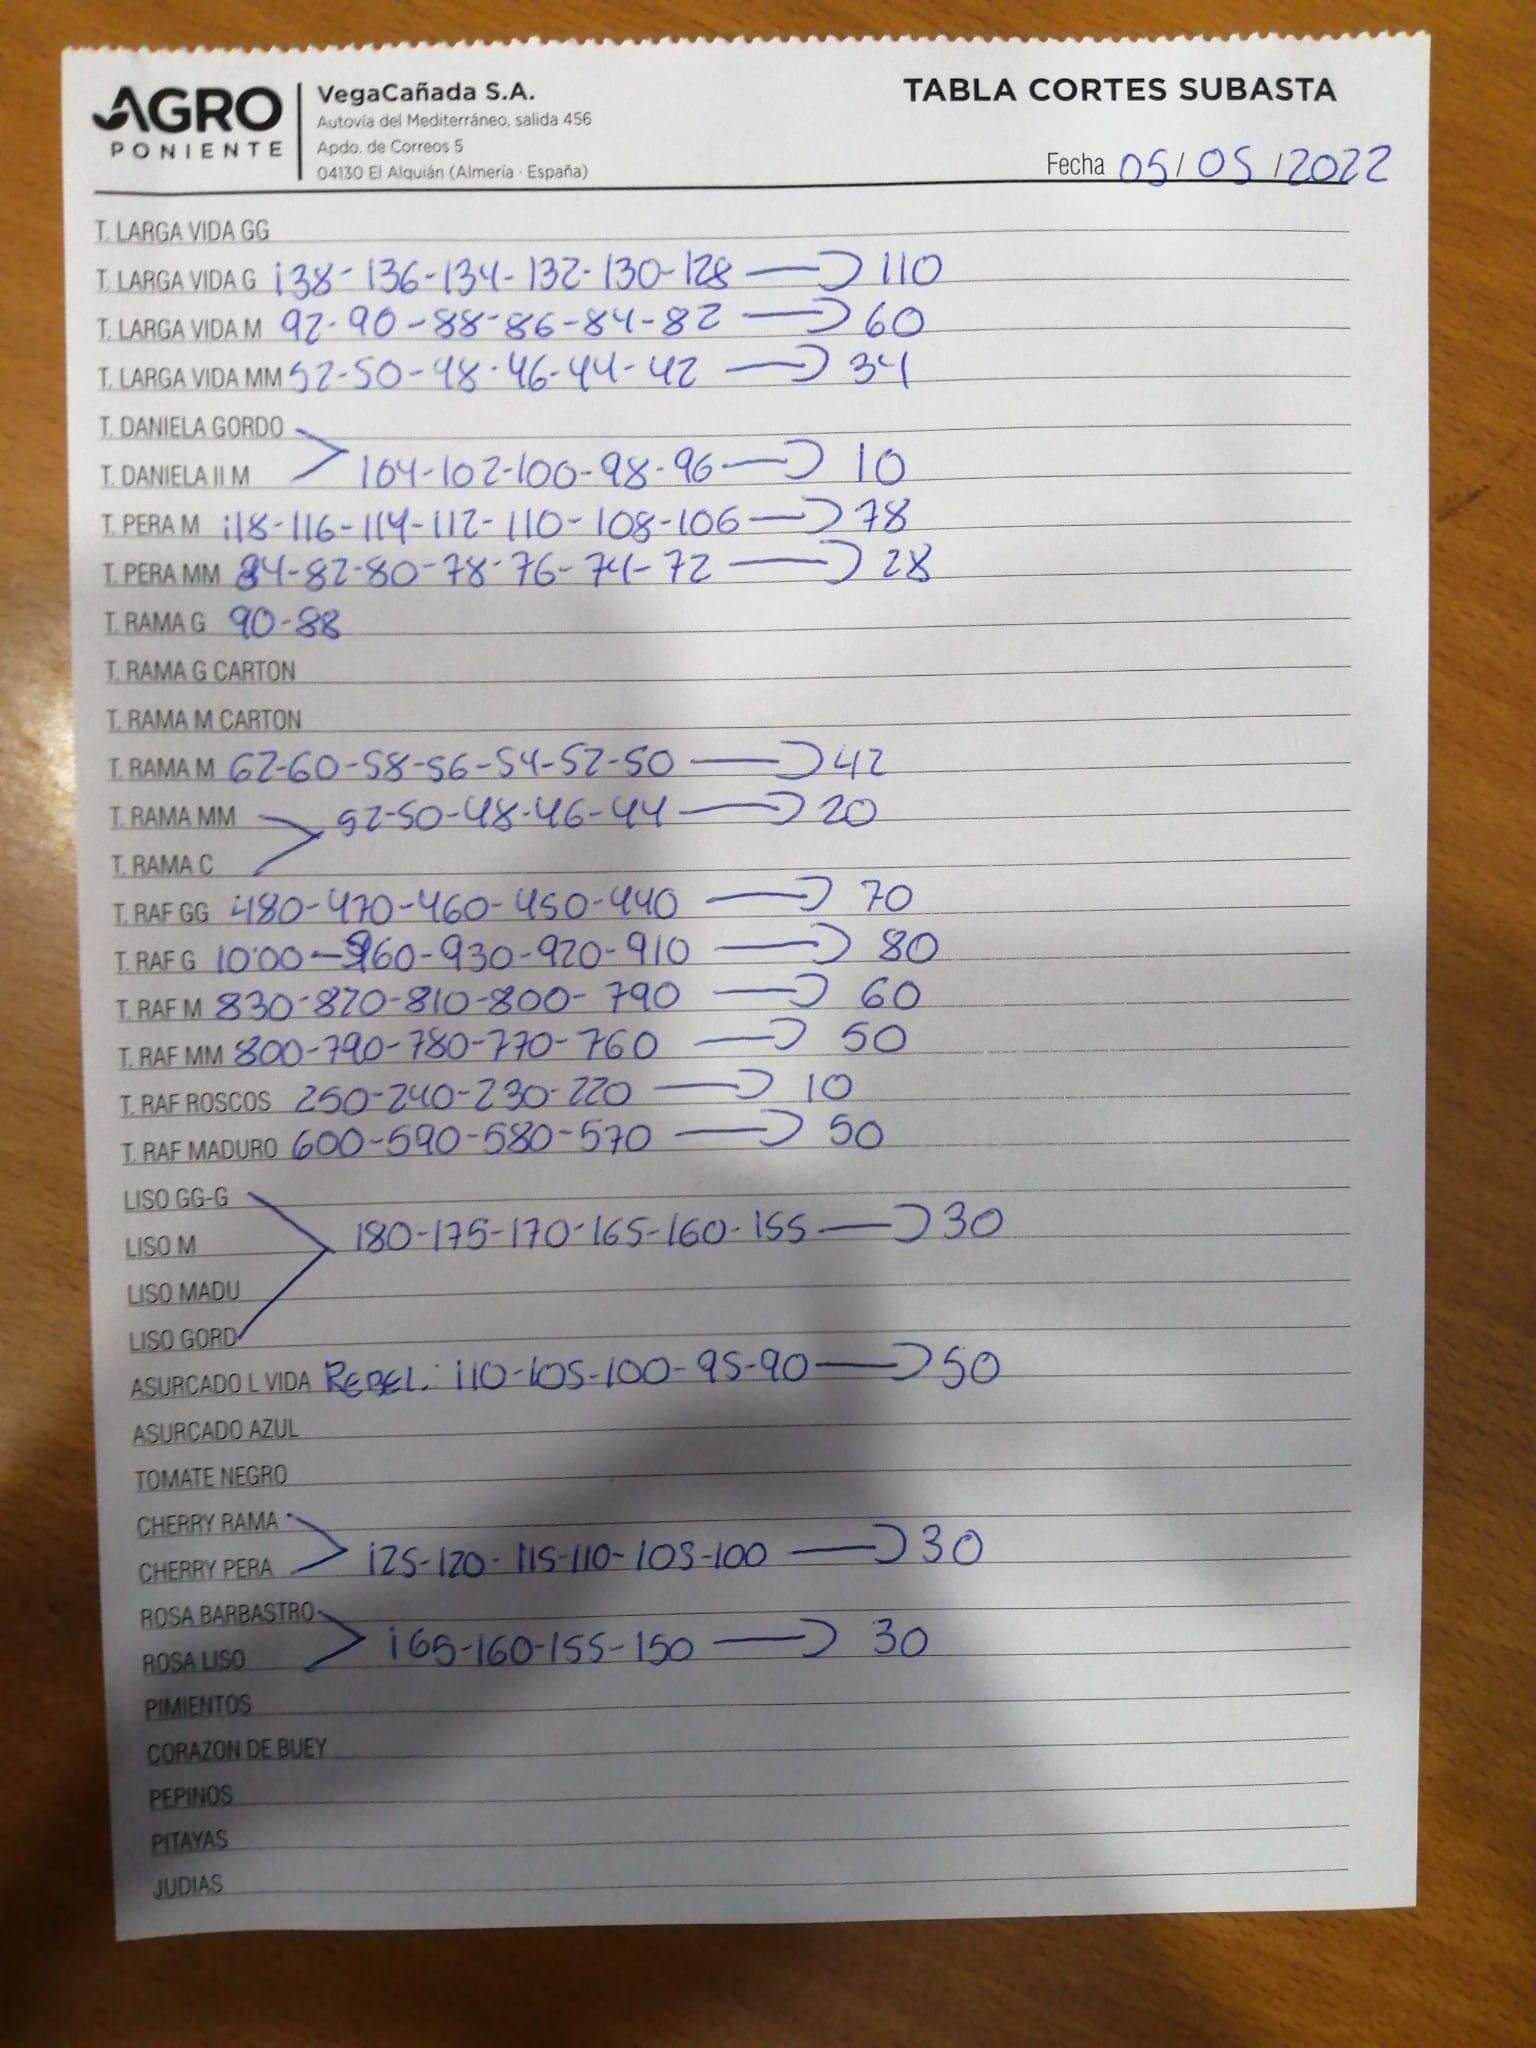 AGRO PONIENTE
VegaCañada S.A.
Autovía del Mediterráneo, salida 456
Apdo. de Correos 5
04130 El Alquián (Almería · España)
TABLA CORTES SUBASTA
Fecha 05/05/2022
T. LARGA VIDA GG
T. LARGA VIDA G 138-136-134-132-130-128 → 110
T. LARGA VIDA M 92-90-88-86-84-82 → 60
T. LARGA VIDA MM 52-50-48-46-44-42 → 34
T. DANIELA GORDO
T. DANIELA II M 104-102-100-98-96 → 10
T. PERA M 118-116-114-112-110-108-106 → 78
T. PERA MM 84-82-80-78-76-74-72 → 28
T. RAMA G 90-88
T. RAMA G CARTON
T. RAMA M CARTON
T. RAMA M 62-60-58-56-54-52-50 → 42
T. RAMA MM 52-50-48-46-44 → 20
T. RAMA C
T. RAF GG 480-470-460-450-440 → 70
T. RAF G 10'00-960-930-920-910 → 80
T. RAF M 830-820-810-800-790 → 60
T. RAF MM 800-790-780-770-760 → 50
T. RAF ROSCOS 250-240-230-220 → 10
T. RAF MADURO 600-590-580-570 → 50
LISO GG-G
LISO M 180-175-170-165-160-155 → 30
LISO MADU
LISO GORD
ASURCADO L VIDA REBEL: 110-105-100-95-90 → 50
ASURCADO AZUL
TOMATE NEGRO
CHERRY RAMA
CHERRY PERA 125-120-115-110-105-100 → 30
ROSA BARBASTRO
ROSA LISO 165-160-155-150 → 30
PIMIENTOS
CORAZON DE BUEY
PEPINOS
PITAYAS
JUDIAS